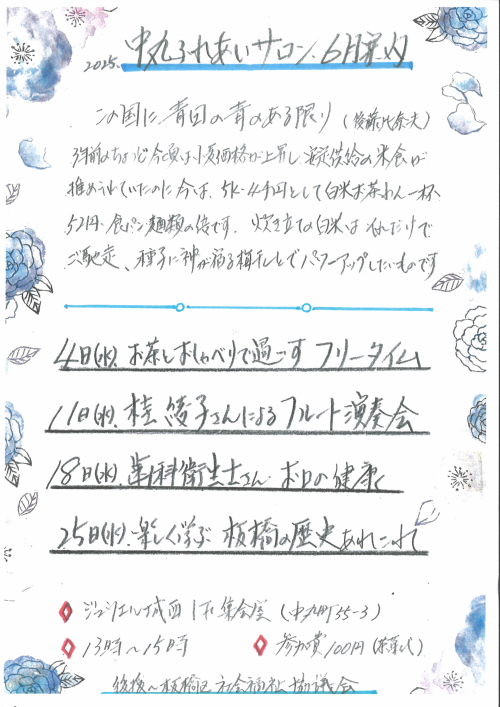 2025. 中丸ふれあいサロン. 6月案内
この国に青田の青のある限り (後藤比奈夫)
3年前のちょうど今頃は小麦価格が上昇し、安定供給の米食が
推められていたのに今は、5K・4千円として白米お茶わん一杯
52円・食パン麺類の倍です. 炊き立ての白米はそれだけで
ご馳走、種子に神が宿る梅干しとでパワーアップしたいものです
4日(水). お茶とおしゃべりで過ごす フリータイム
11日(水). 桂 綾子さんによるフルート演奏会
18日(水). 歯科衛生士さん お口の健康
25日(水). 楽しく学ぶ 板橋の歴史あれこれ
城西1F集会室 (中丸町35-3)
13時〜15時 参加費100円 (茶菓代)
後援〜板橋区社会福祉協議会